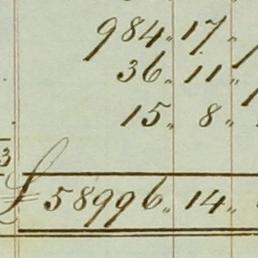 984 " 17 "
36 " 11 "
15 " 8 "
3
£ 58996 " 14 "